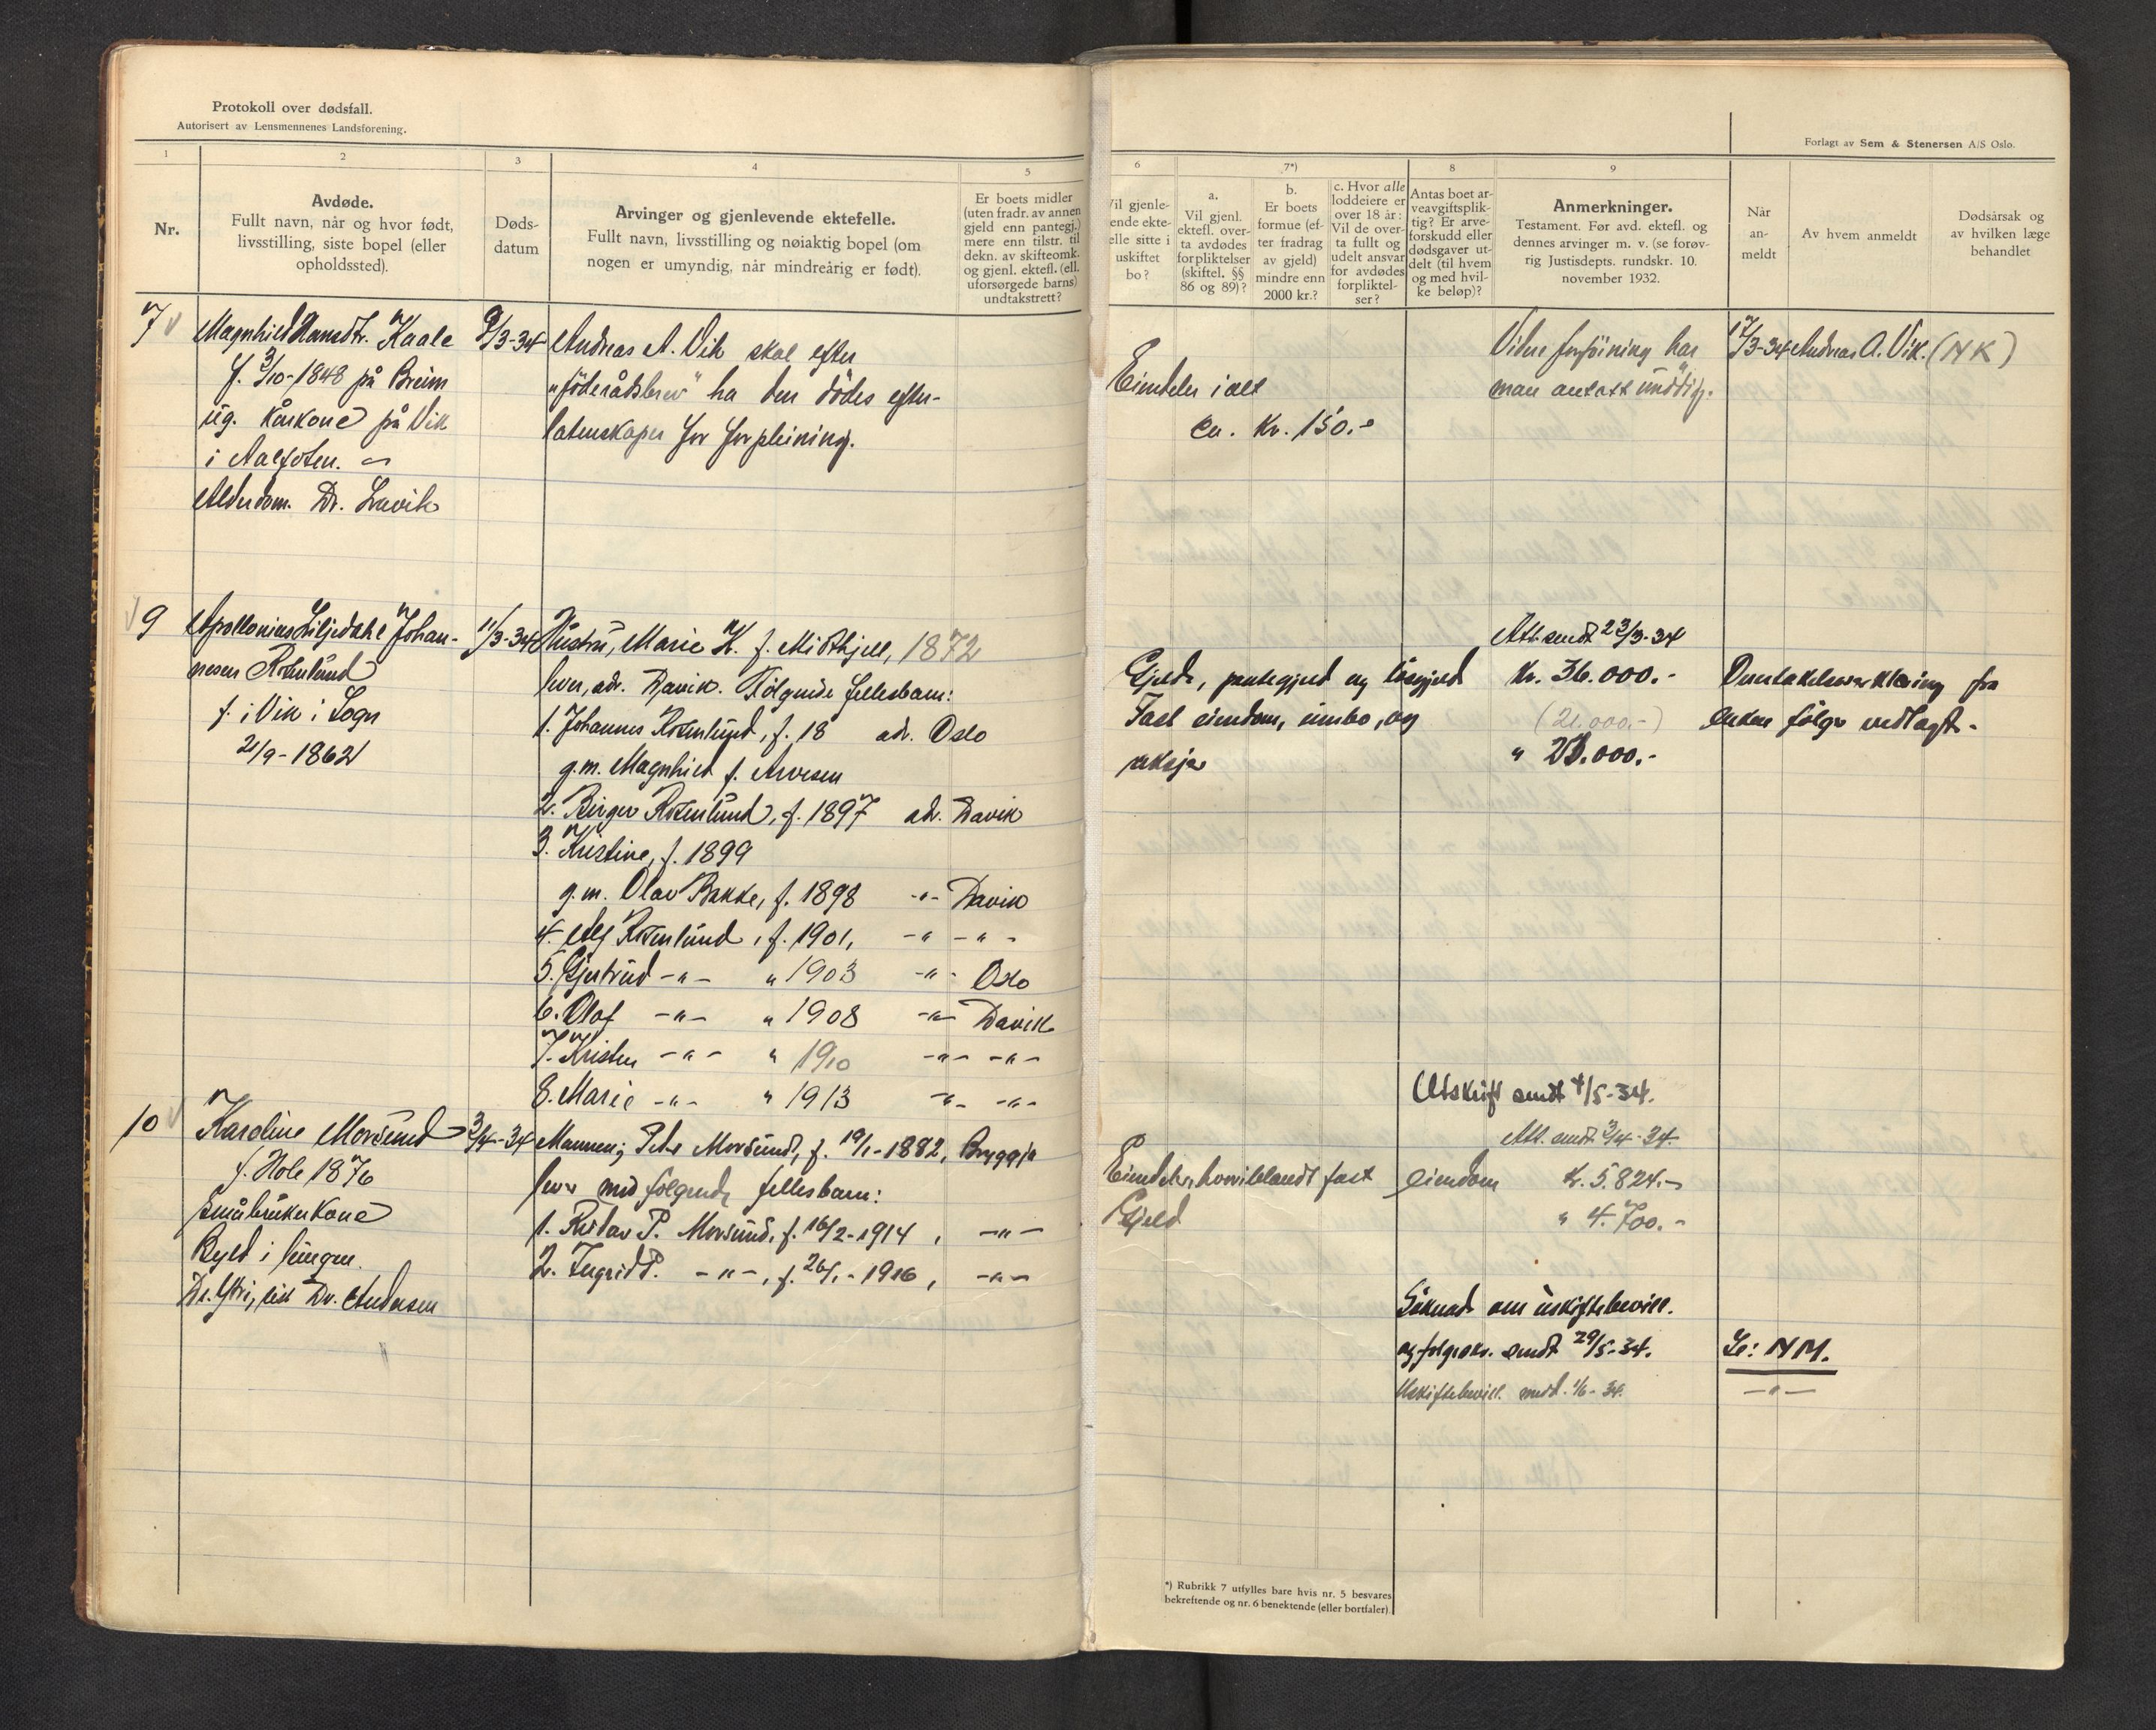 Protokoll over dødsfall.
Autorisert av Lensmennenes Landsforening.
Forlagt av Sem & Stenersen A/S Oslo.
1 2 3 4 5 6 7*) 8 9
Nr.
Avdøde.
Fullt navn, når og hvor født,
livsstilling, siste bopel (eller
opholdssted).
Døds-
datum
Arvinger og gjenlevende ektefelle.
Fullt navn, livsstilling og nøiaktig bopel (om
nogen er umyndig, når mindreårig er født).
Er boets midler
(uten fradr. av annen
gjeld enn pantegj.)
mere enn tilstr. til
dekn. av skifteomk.
og gjenl. ektefl. (ell.
uforsørgede barns)
undtakstrett?
Vil gjenle-
ende ekte-
elle sitte i
uskiftet
bo?
a.
Vil gjenl.
ektefl. over-
ta avdødes
forpliktelser
(skiftel. §§
86 og 89)?
b.
Er boets
formue (ef-
ter fradrag
av gjeld)
mindre enn
2000 kr.?
c. Hvor alle
loddeiere er
over 18 år:
Vil de over-
ta fullt og
udelt ansvar
for avdødes
forpliktel-
ser?
Antas boet ar-
veavgiftsplik-
tig? Er arve-
forskudd eller
dødsgaver ut-
delt (til hvem
og med hvil-
ke beløp)?
Anmerkninger.
Testament. Før avd. ektefl. og
dennes arvinger m. v. (se forøv-
rig Justisdepts. rundskr. 10.
november 1932.
Når
an-
meldt
Av hvem anmeldt
Dødsårsak og
av hvilken læge
behandlet
7
Magnhild Hansdtr. Kaale
f. 3/10-1848 på Breim
ug. kårkone på Vik
i Aalfoten.
Alderdom. Dr. Lavik
9/3-34
Andreas A. Vik skal efter
"föderådsbrev" ha den dödes efter-
latenskaper for forpleining.
Eiendeler i alt
ca. Kr. 150.-
Videre forföining har
man antatt unödig.
17/3-34 Andreas A. Vik. (NK)
9
Apollonius Liljedahl Johan-
nesen Rosenlund
f. i Vik i Sogn
21/9-1862
11/3-34
Hustru, Marie K. f. Midthjell, 1872
lever, adr. Davik. Fölgende fellesbarn:
1. Johannes Rosenlund, f. 18 adr. Oslo
g.m. Magnhild f. Arvesen
2. Birger Rosenlund, f. 1897 adr. Davik
3. Kristine, f. 1899
g.m. Olav Bakke, f. 1898 -"- Davik
4. Alf Rosenlund, f. 1901, -"- "-
5. Gjertrud -"- " 1903 -"- Oslo
6. Olaf -"- " 1908 -"- Davik
7. Kristen -"- " 1910 -"- -"-
8. Marie -"- " 1913 -"- -"-
Att. sendt 23/3-34
Gjeld, pantegjeld og lösgjeld Kr. 36.000.-
Fast eiendom, innbo, og (21.000.-)
aksjer " 23.000.-
Overtakelseserklæring fra
enken fölger vedlagt.
10
Karoline Morsund
f. Hole 1876
småbrukerkone
Byld i lungen.
Dr. Ytri, sist Dr. Andersen
3/4-34
Mannen; Peder Morsund, f. 19/1-1882, Bryggja
lever med fölgende fellesbarn:
1. Reidar P. Morsund, f. 16/2-1914, -"-
2. Ingrid P. -"-, f. 26/1-1916, -"-
Utskrift sendt 4/5-34.
Att. sendt 3/4-34.
Eiendeler, hvoriblandt fast eiendom Kr. 5.824.-
Gjeld " 4.700.-
Söknad om uskiftebevill.
og fölgeskr. sendt 29/5-34. Se: NM.
Uskiftebevill. medd. 1/6-34. -"-
*) Rubrikk 7 utfylles bare hvis nr. 5 besvares
bekreftende og nr. 6 benektende (eller bortfaler).